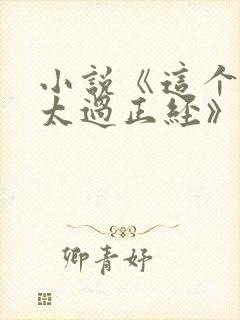 小説《這个
太過正経》
卿青妤